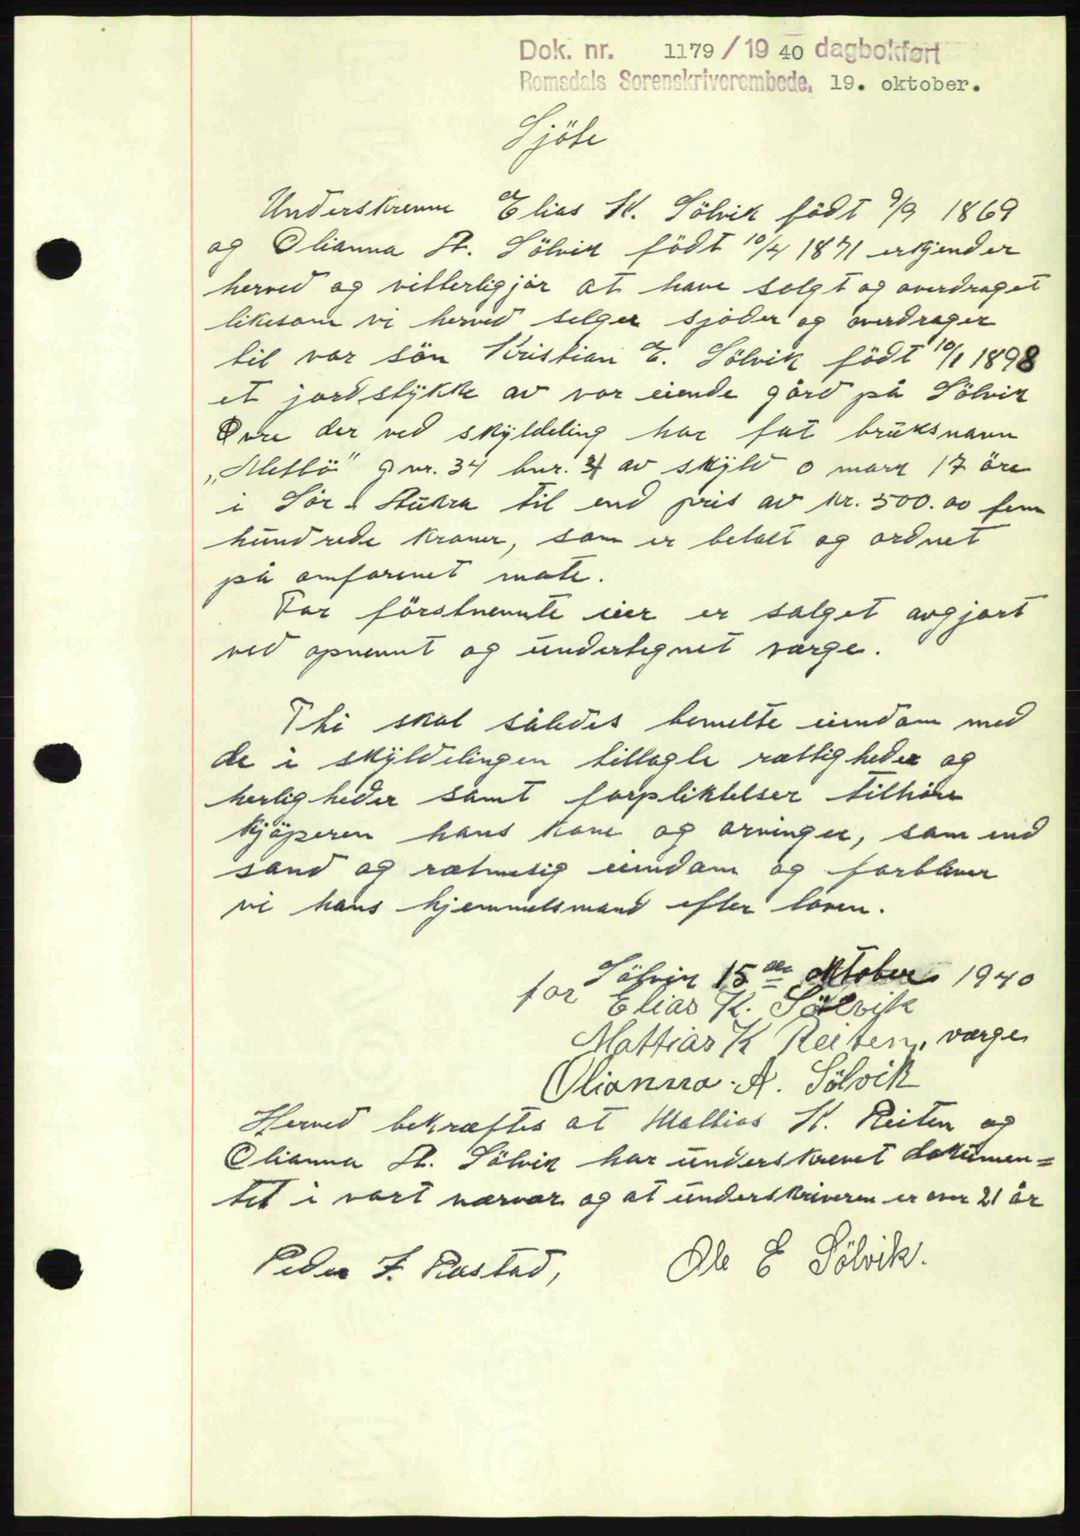 Dok. nr. 1179 / 19 40 dagbokført
Romsdals Sorenskriverembede, 19. oktober.
Sjöte
Underskrevne Elias K. Sölvik födt 9/9 1869
og Olianna A. Sölvik födt 10/4 1871 erkjender
herved og vitterligjør at have solgt og overdraget
likesom vi herved selger sjöder og overdrager
til vor sön Kristian E. Sölvik födt 10/1 1898
et jordstykke av vor eiende gård på Sölvik
Övre der ved skyldeling har fåt bruksnavn
g nr. 34 bnr. av skyld 0 mark 17 öre
i Sör-Aukra til end pris av kr. 500.00 fem
hundrede kroner, som er betalt og ordnet
på omforenet måte.
For förstnevnte eier er salget avgjort
ved opnevnt og undertegnet værge.
Thi skal således bemelte eiendom med
de i skyldelingen tillagte rettigheder og
herligheder samt forpliktelser tilhöre
kjöperen hans kone og arvinger, som end
sand og retmesig eiendom og forbliver
vi hans hjemmelsmand efter loven.
Sölvik 15 de oktober 1940
for Elias K. Sölvik
Mattias K Reiten, værge
Olianna A. Sölvik
Herved bekræftes at Mattias K. Reiten og
Olianna A. Sölvik har underskrevet dokumen=
tet i vort nærvær og at underskriveren er over 21 år
Peder J. Rastad, Ole E Sölvik.